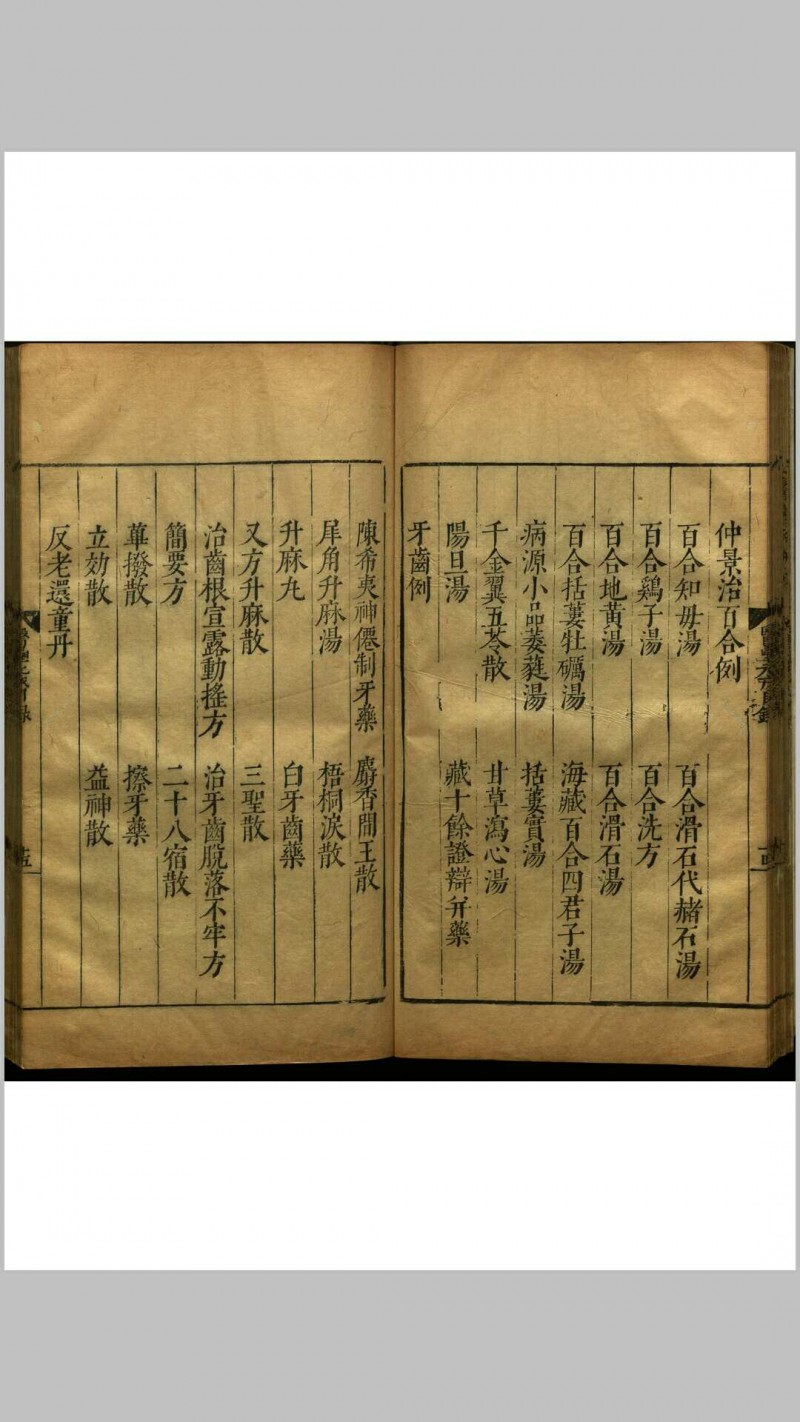 仲景治百合例
百合知毋湯　百合滑石代赭石湯
百合鷄子湯　百合洗方
百合地黄湯　百合滑石湯
百合括蔞牡礪湯　海藏百合四君子湯
病源小品萎蕤湯　括蔞實湯
千金翼五苓散　甘草瀉心湯
陽旦湯　藏十餘證辯并藥
牙齒例
陳希夷神僊制牙藥　麝香間王散
犀角升麻湯　梧桐淚散
升麻丸　白牙齒藥
又方升麻散　三聖散
治齒根宣露動搖方　治牙齒脫落不牢方
簡要方　二十八宿散
蓽撥散　擦牙藥
立効散　益神散
反老還童丹